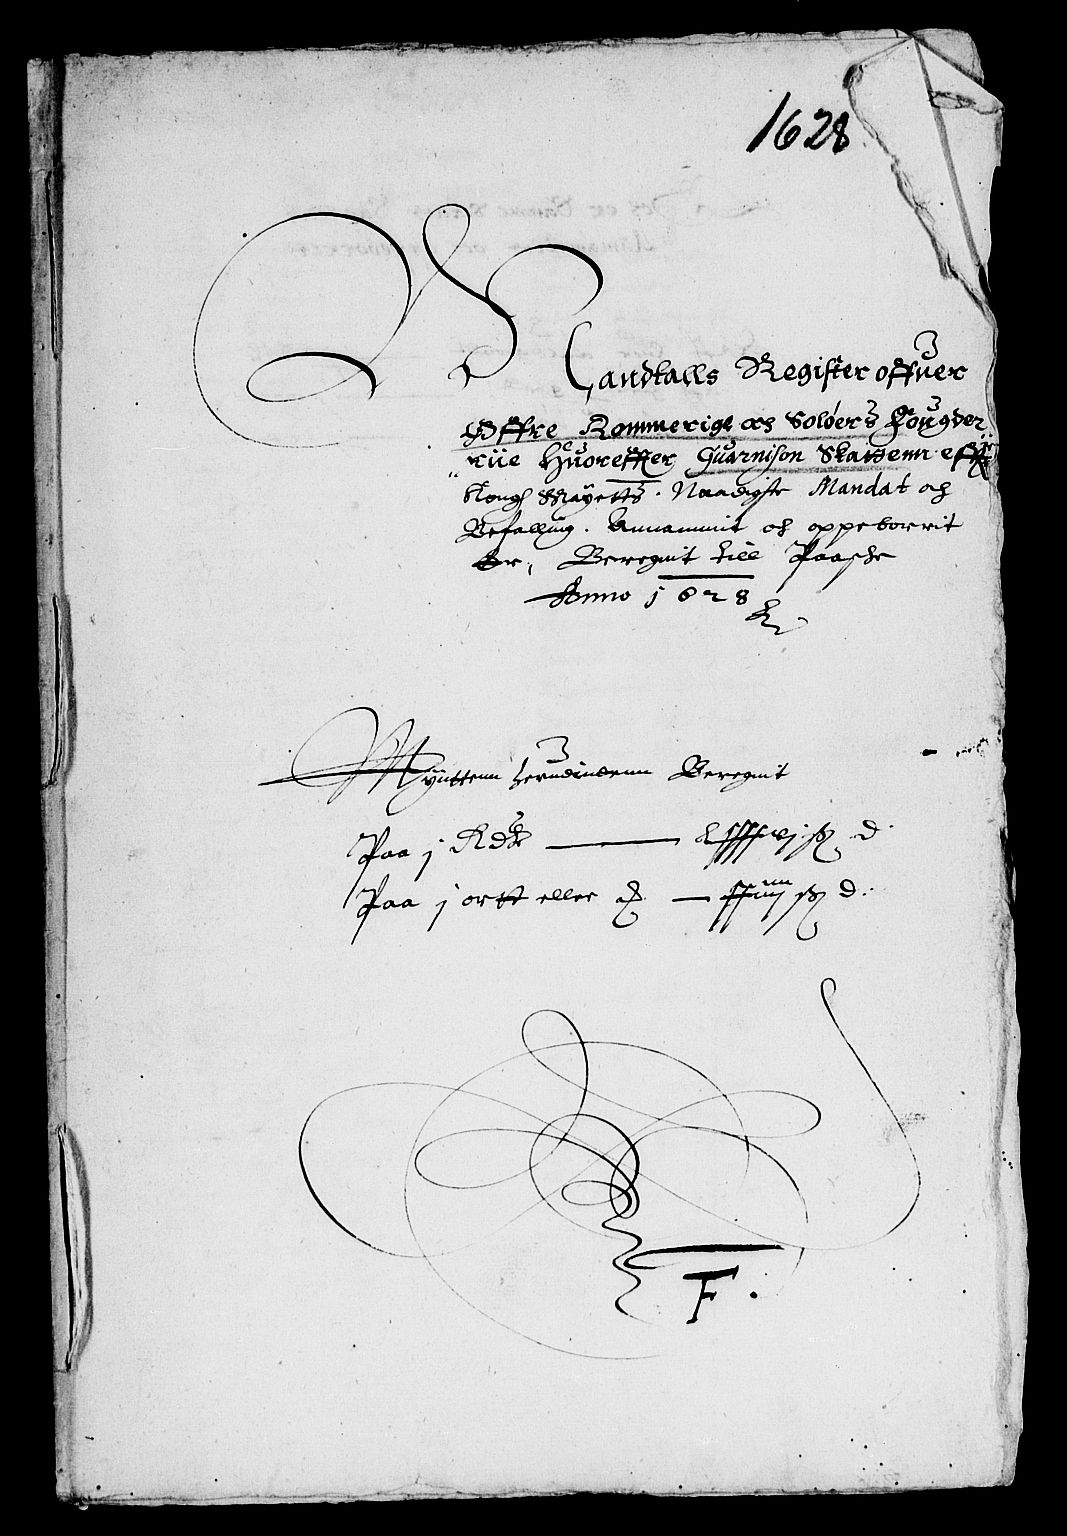 1628
Mandtalls Register offuer
Øffre Rommerige och Soløers Fougder
riie Huoreffter Guarnison Skattenn effter
Kongl Mayetts. Naadigste Mandat och
Befalling. Annammit och oppeborrit
Er, Beregnit till Paasche
Anno 1628
Myntten herudindenn Beregnit
Paa j Rdr ——— ß d.
Paa j ortt eller — xxiiij ß d.
F.